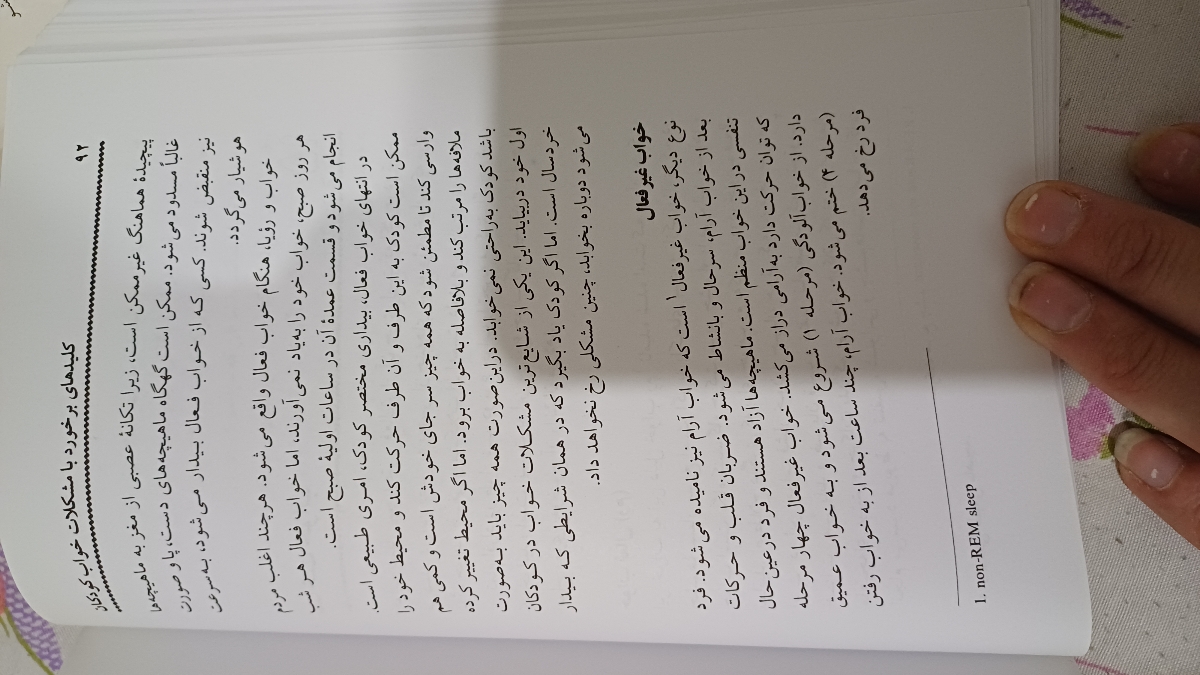 ۹۲ کلیدهای برخورد با مشکلات خواب کودکان
پیچیدهٔ هماهنگ غیرممکن است، زیرا تکانهٔ عصبی از مغز به ماهیچه‌ها
غالباً مسدود می‌شود. ممکن است گهگاه ماهیچه‌های دست، پا و صورت
نیز منقبض شوند. کسی که از خواب فعال بیدار می‌شود، به‌سرعت
هوشیار می‌گردد.
خواب و رؤیا، هنگام خواب فعال واقع می‌شود. هرچند اغلب مردم
هر روز صبح، خواب خود را به‌یاد نمی‌آورند، اما خواب فعال هر شب
انجام می‌شود و قسمت عمدهٔ آن در ساعات اولیهٔ صبح است.
در انتهای خواب فعال، بیداری مختصر کودک، امری طبیعی است.
ممکن است کودک به این طرف و آن طرف حرکت کند و محیط خود را
وارسی کند تا مطمئن شود که همه چیز سر جای خودش است و کمی هم
ملافه‌ها را مرتب کند و بلافاصله به خواب برود. اما اگر محیط تغییر کرده
باشد کودک به‌راحتی نمی‌خوابد. دراین‌صورت همه چیز باید به‌صورت
اول خود دربیاید. این یکی از شایع‌ترین مشکلات خواب در کودکان
خردسال است. اما اگر کودک یاد بگیرد که در همان شرایطی که بیدار
می‌شود دوباره بخوابد، چنین مشکلی رخ نخواهد داد.
خواب غیرفعال
نوع دیگر، خواب غیرفعال۱ است که خواب آرام نیز نامیده می‌شود. فرد
بعد از خواب آرام، سرحال و بانشاط می‌شود. ضربان قلب و حرکات
تنفسی در این خواب منظم است. ماهیچه‌ها آزاد هستند و فرد درعین‌حال
که توان حرکت دارد به‌آرامی دراز می‌کشد. خواب غیرفعال چهار مرحله
دارد. از خواب‌آلودگی (مرحله ۱) شروع می‌شود و به خواب عمیق
(مرحله ۴) ختم می‌شود. خواب آرام، چند ساعت بعد از به خواب رفتن
فرد رخ می‌دهد.
1. non-REM sleep